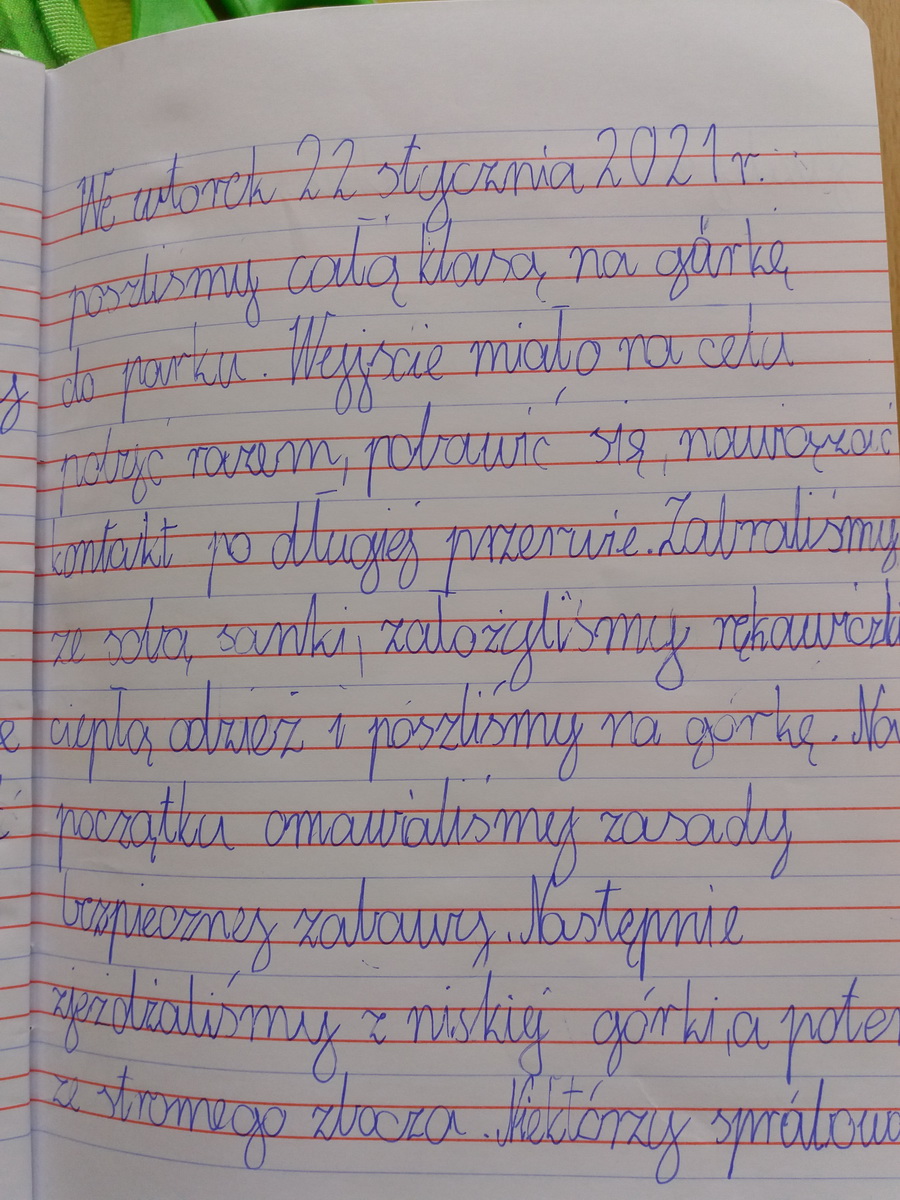 We wtorek 22 stycznia 2021 r.
poszliśmy całą klasą na górkę
do parku. Wyjście miało na celu
pobyć razem, pobawić się, nawiązać
kontakt po długiej przerwie. Zabraliśmy
ze sobą sanki, założyliśmy rękawiczki
ciepłą odzież i poszliśmy na górkę. Na
początku omawialiśmy zasady
bezpiecznej zabawy. Następnie
zjeżdżaliśmy z niskiej górki, a potem
ze stromego zbocza. Niektórzy spróbowa